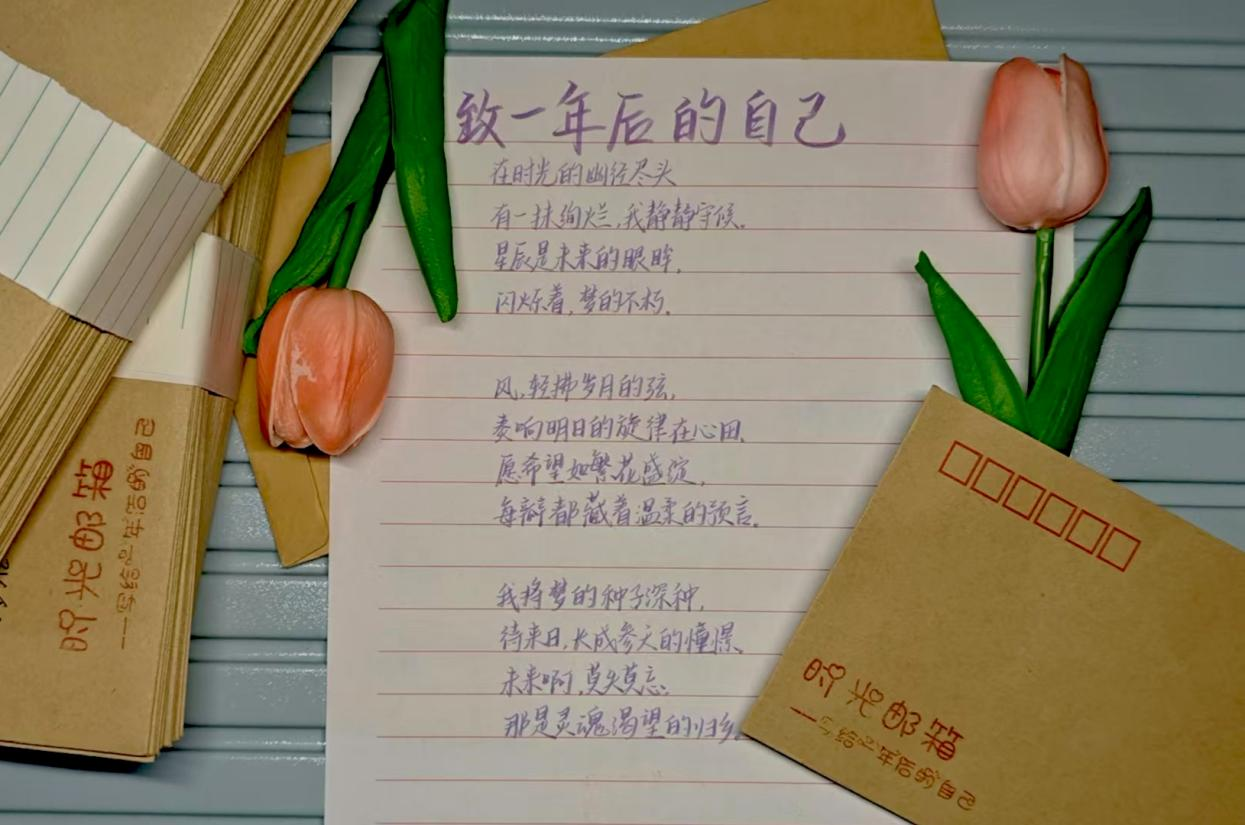 致一年后的自己
在时光的幽径尽头
有一抹绚烂,我静静守候。
星辰是未来的眼眸,
闪烁着,梦的不朽。
风,轻拂岁月的弦,
奏响明日的旋律在心田。
愿希望如繁花盛绽,
每瓣都藏着温柔的预言。
我将梦的种子深种,
待来日,长成参天的憧憬。
未来啊,莫失莫忘。
那是灵魂渴望的归乡
时光邮箱
——写给一年后的自己
时光邮箱
——写给一年后的自己